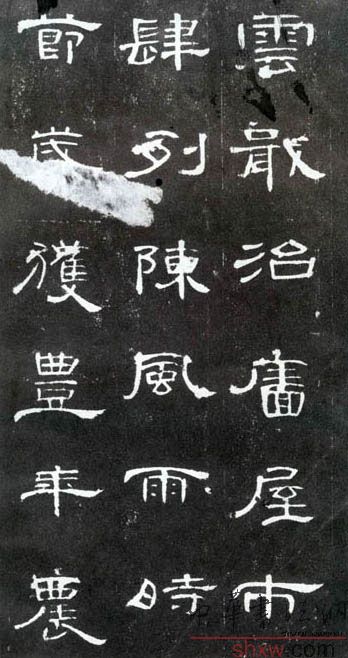 雲散治廧屋市
肆列陳風雨時
節歲獲豊年農
shxw.com